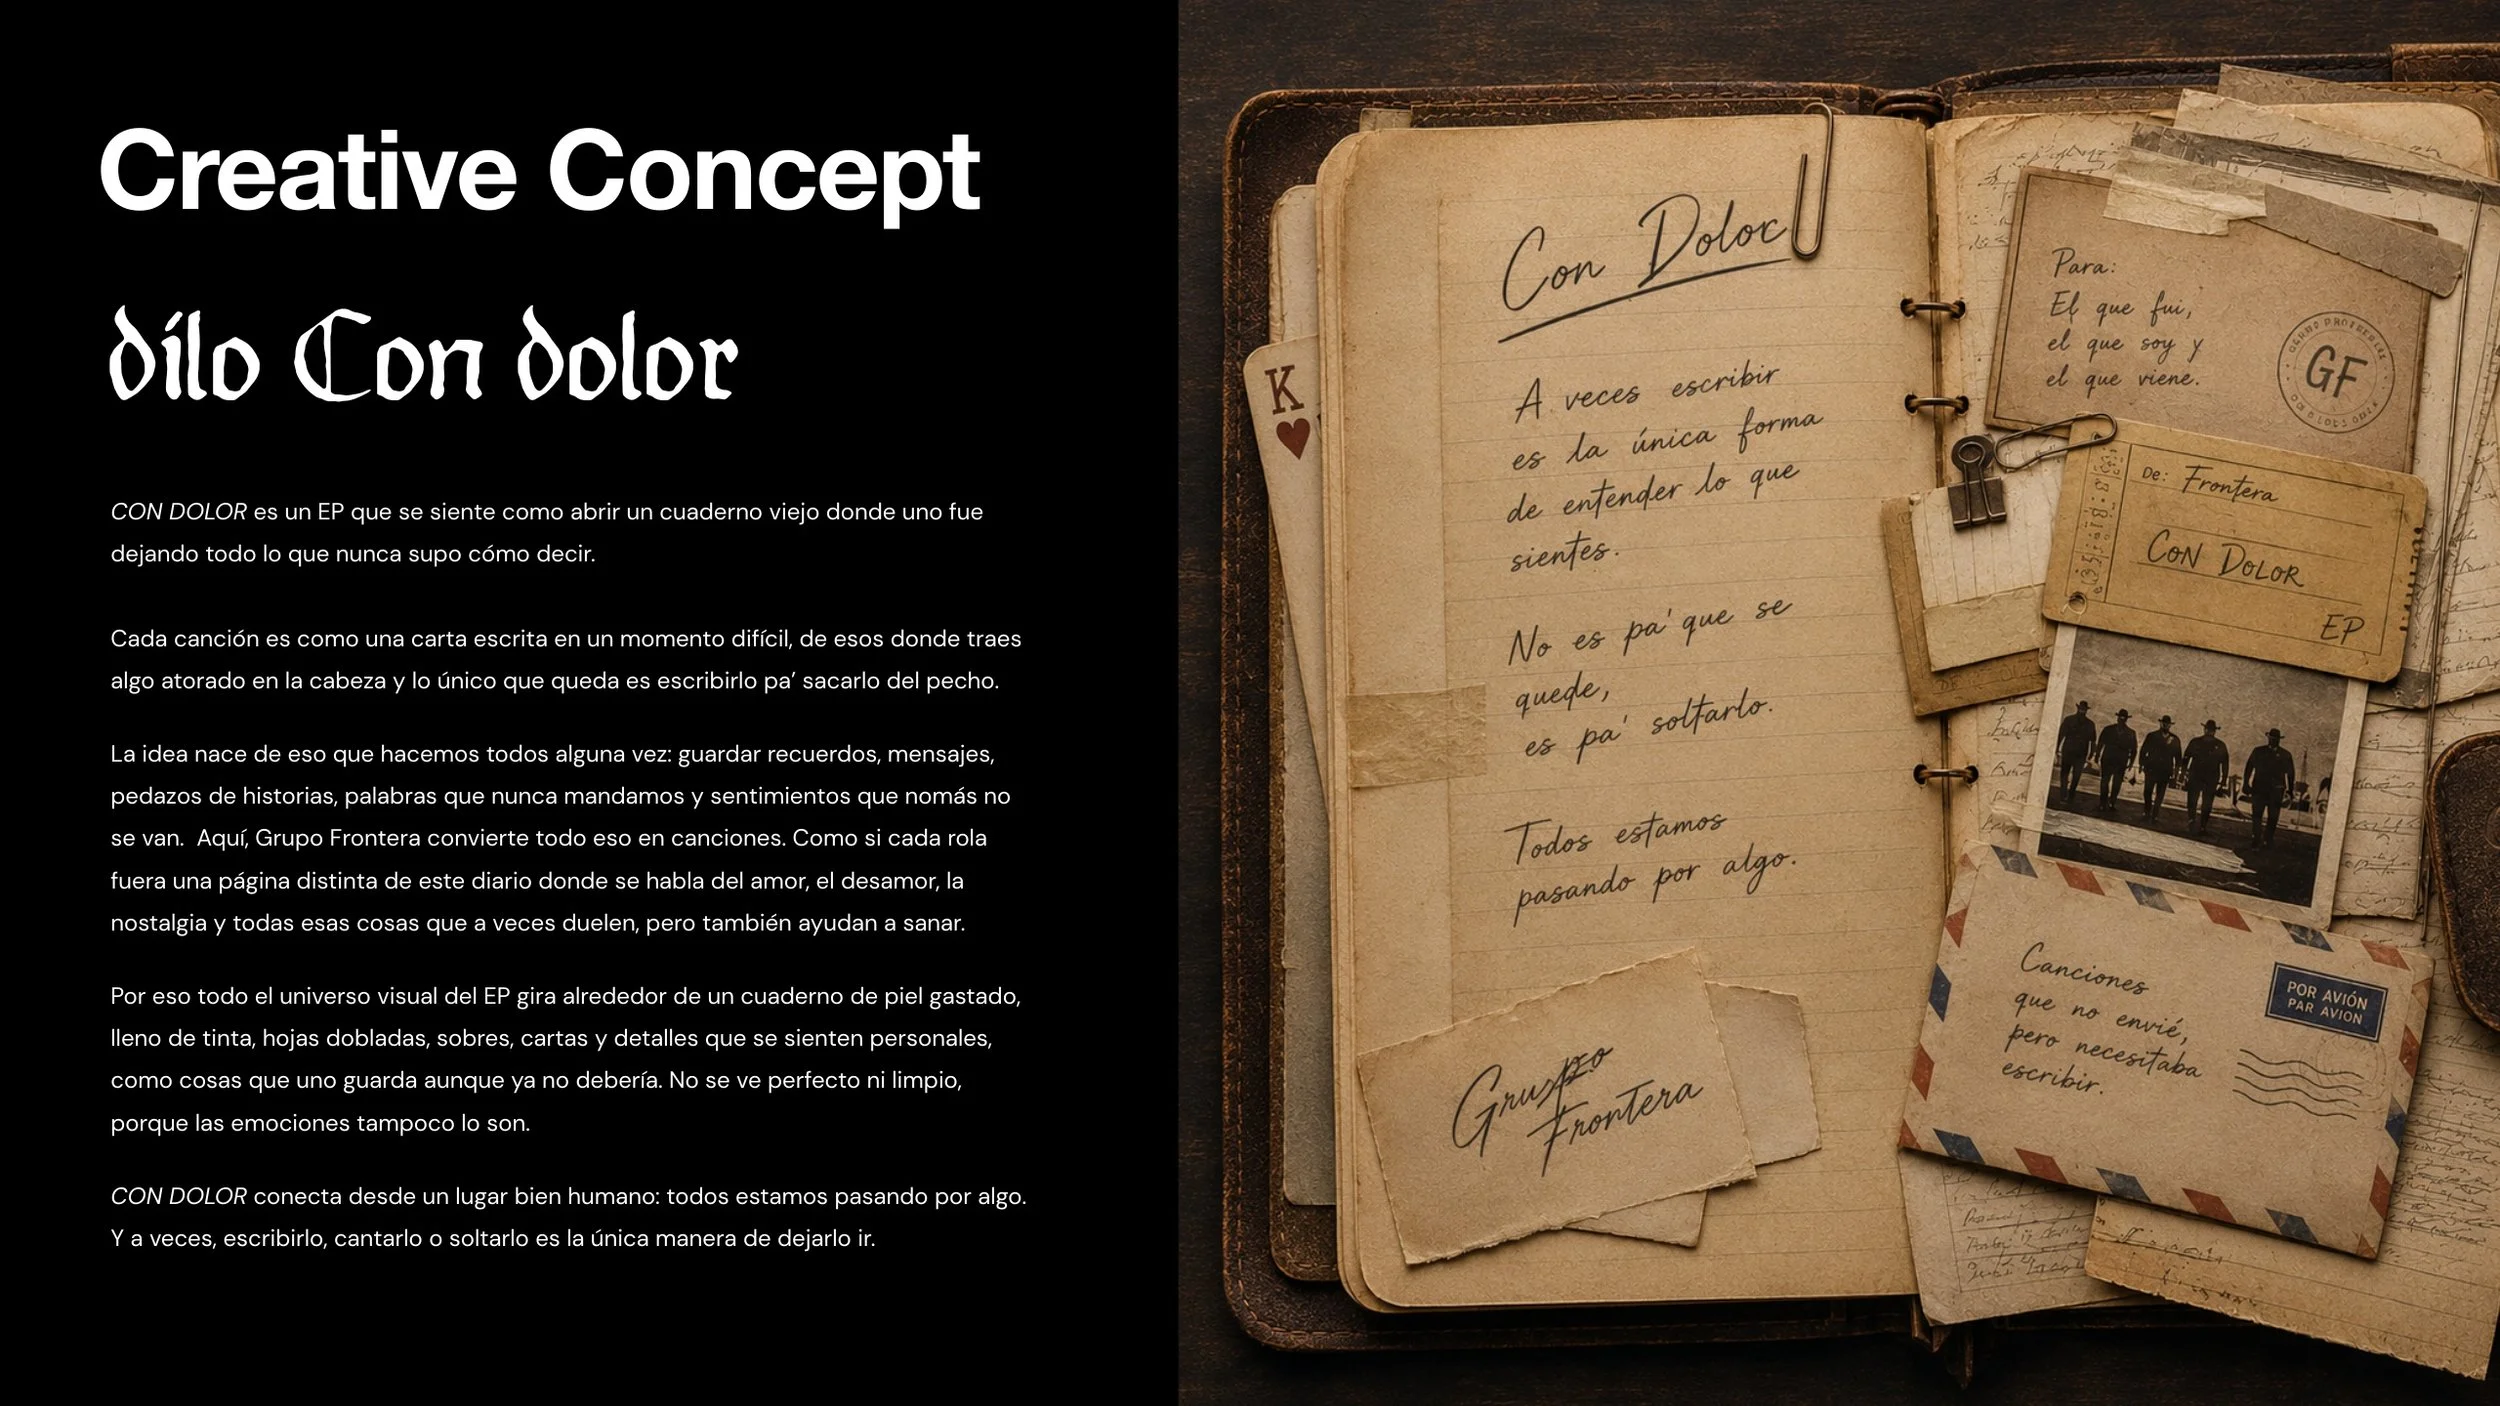 Creative Concept
dílo Con dolor
CON DOLOR es un EP que se siente como abrir un cuaderno viejo donde uno fue
dejando todo lo que nunca supo cómo decir.
Cada canción es como una carta escrita en un momento difícil, de esos donde traes
algo atorado en la cabeza y lo único que queda es escribirlo pa’ sacarlo del pecho.
La idea nace de eso que hacemos todos alguna vez: guardar recuerdos, mensajes,
pedazos de historias, palabras que nunca mandamos y sentimientos que nomás no
se van.  Aquí, Grupo Frontera convierte todo eso en canciones. Como si cada rola
fuera una página distinta de este diario donde se habla del amor, el desamor, la
nostalgia y todas esas cosas que a veces duelen, pero también ayudan a sanar.
Por eso todo el universo visual del EP gira alrededor de un cuaderno de piel gastado,
lleno de tinta, hojas dobladas, sobres, cartas y detalles que se sienten personales,
como cosas que uno guarda aunque ya no debería. No se ve perfecto ni limpio,
porque las emociones tampoco lo son.
CON DOLOR conecta desde un lugar bien humano: todos estamos pasando por algo.
Y a veces, escribirlo, cantarlo o soltarlo es la única manera de dejarlo ir.
K
Con Dolor
A veces escribir
es la única forma
de entender lo que
sientes.
No es pa' que se
quede,
es pa' soltarlo.
Todos estamos
pasando por algo.
Grupo
Frontera
Para:
El que fui,
el que soy y
el que viene.
GF
De: Frontera
CON DOLOR
EP
Canciones
que no envié,
pero necesitaba
escribir.
POR AVIÓN
PAR AVION